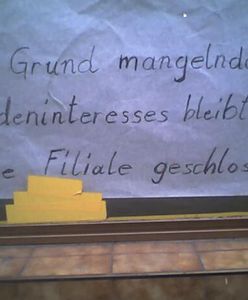 Grund mangelnde
deninteresses bleibt
e Filiale geschlos